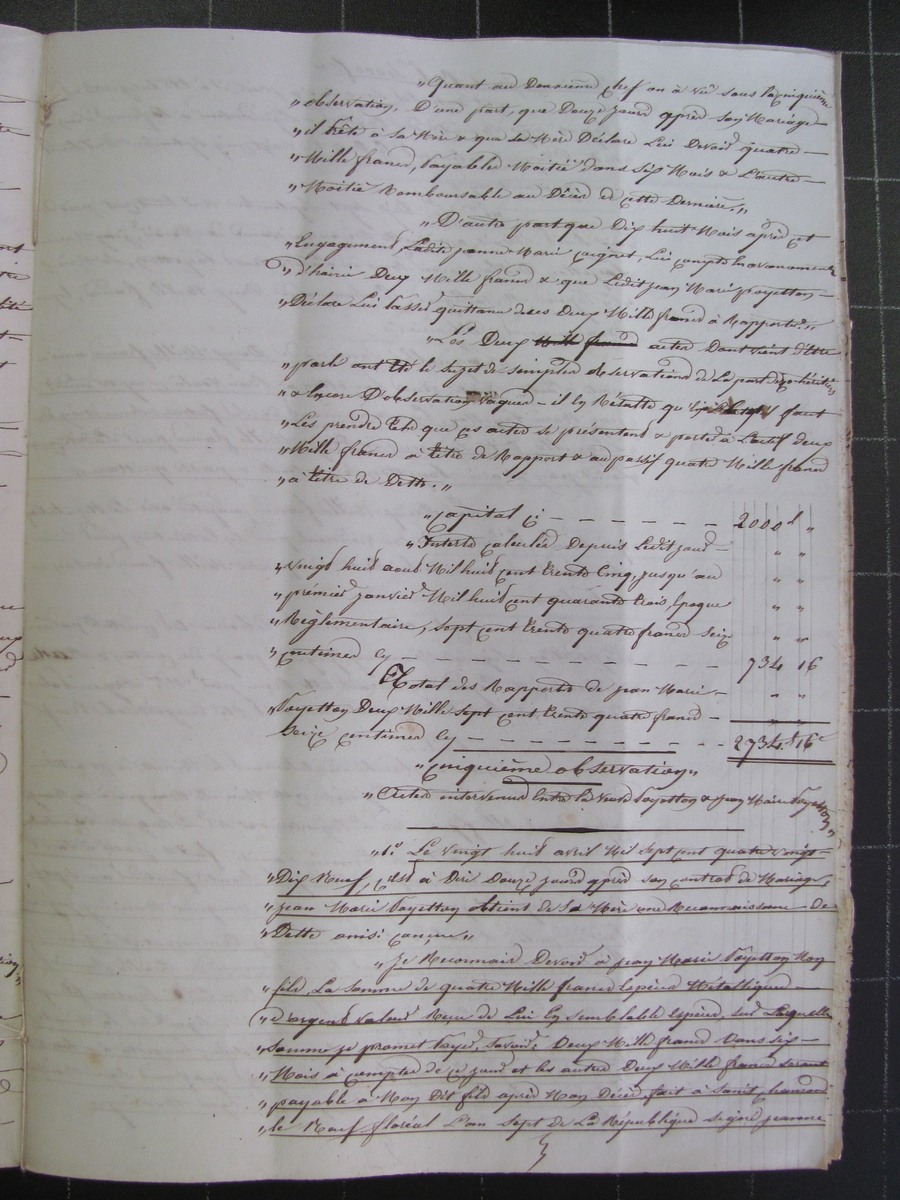 „ Quant au Deuxième chef on à vu sous la cinquième
„ observation, D'une part, que Douze jours après son Mariage
„ il prête à sa Mère & que sa Mère Déclare Lui Devoir quatre
„ Mille francs, Payables Moitié Dans six Mois & L'autre
„ Moitié Remboursable au Décès de cette Dernière „
„ D'autre part que Dix huit Mois après cet
„ Engagement, Ladite jeanne Marie Coignet, Lui compte en avancement
„ d'hoirie Deux Mille francs & que Ledit jean Marie Payetton
„ Déclare Lui Passer quittance de ces Deux Mille francs à Rapporter „
„ Les Deux actes Dont vient d'être
„ parlé ont été le sujet de simples observations de La part des co-héritiers
„ & Encore D'observations vagues – il En Résulte qu'il faut
„ Les prendre tels que ces actes se présentent & porter à L'actif deux
„ Mille francs à titre de Rapport & au passif quatre Mille francs
„ à titre de Dette. „
„ Capital ci 2000 f „
„ Interets calculés Depuis Ledit jour „ „
„ vingt huit aout Mil huit cent trente Cinq, jusqu'au „ „
„ prémier janvier Mil huit cent quarante trois, Epoque „ „
„ Règlementaire, sept cent trente quatre francs seize „ „
„ centimes Cy 734 16
Total des Rapports de jean Marie „ „
Payetton Deux Mille sept cent trente quatre francs
Seize centimes Cy 2734 f 16 c
„ Cinquième observation „
„ Actes intervenus Entre la veuve Payetton & jean Marie Payetton „
„ 1° Le vingt huit avril Mil sept cent quatre vingt
„ Dix Neuf, C'est à Dire Douze jours après son contrat de Mariage,
„ jean Marie Payetton obtient de sa Mère une Reconnaissance de
„ Dette ainsi conçue „
„ Je Reconnais Devoir à jean Marie Payetton Mon
„ fils La somme de quatre Mille francs Espèces Métalliques
„ d'argent valeur Reçue de Lui En semblable espèces, sur Laquelle
„ somme je promet Payer, savoir: Deux Mille francs Dans six
„ Mois à compter de ce jour et les autres Deux Mille francs seront
„ payable à Mon Dit fils après Mon Décès, fait à Saint chamond
„ le Neuf floréal L'an Sept de La République signé jeanne